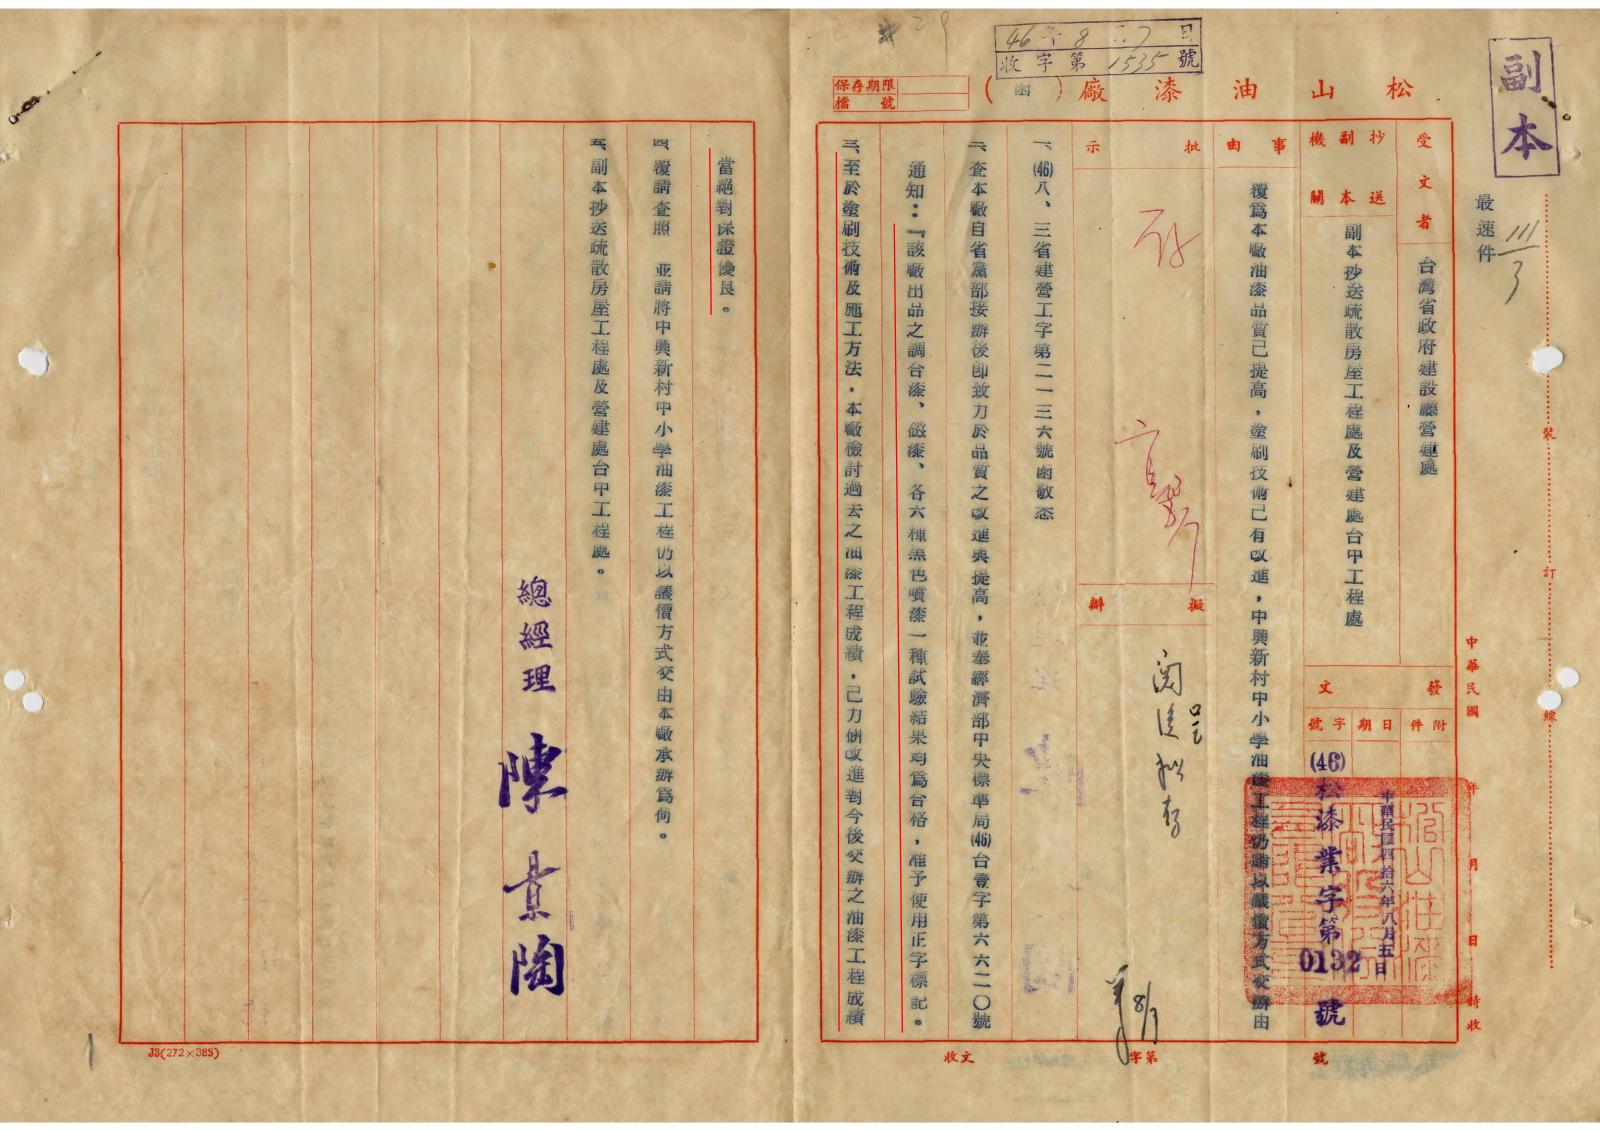 副本
最速件
111/3
46年8月7日
收字第1535號
松山油漆廠（函）
保存期限
檔號
受文者
台灣省政府建設廳營建處
抄送副本機關
副本抄送疏散房屋工程處及營建處台中工程處
發文
附件
日期
字號
中華民國四拾六年八月五日
(46)松漆業字第0132號
事由
覆為本廠油漆品質已提高，塗刷技術已有改進，中興新村中小學油漆工程仍請以議價方式交辦由
批示
擬辦
閱後擬存
8/7
一、(46)八、三省建營工字第二一三六號函敬悉
二、查本廠自省黨部接辦後即致力於品質之改進與提高，並奉經濟部中央標準局(46)台壹字第六六二一〇號
通知：『該廠出品之調合漆、磁漆、各六種黑色噴漆一種試驗結果均為合格，准予使用正字標記。
三、至於塗刷技術及施工方法，本廠檢討過去之油漆工程成績，已力研改進對今後交辦之油漆工程成績
當絕對保證優良。
四、覆請查照　並請將中興新村中小學油漆工程仍以議價方式交由本廠承辦為荷。
五、副本抄送疏散房屋工程處及營建處台中工程處。
總經理　陳景陶
裝
訂
線
中華民國　年　月　日　時收
收文　字第　號
J3(272×385)